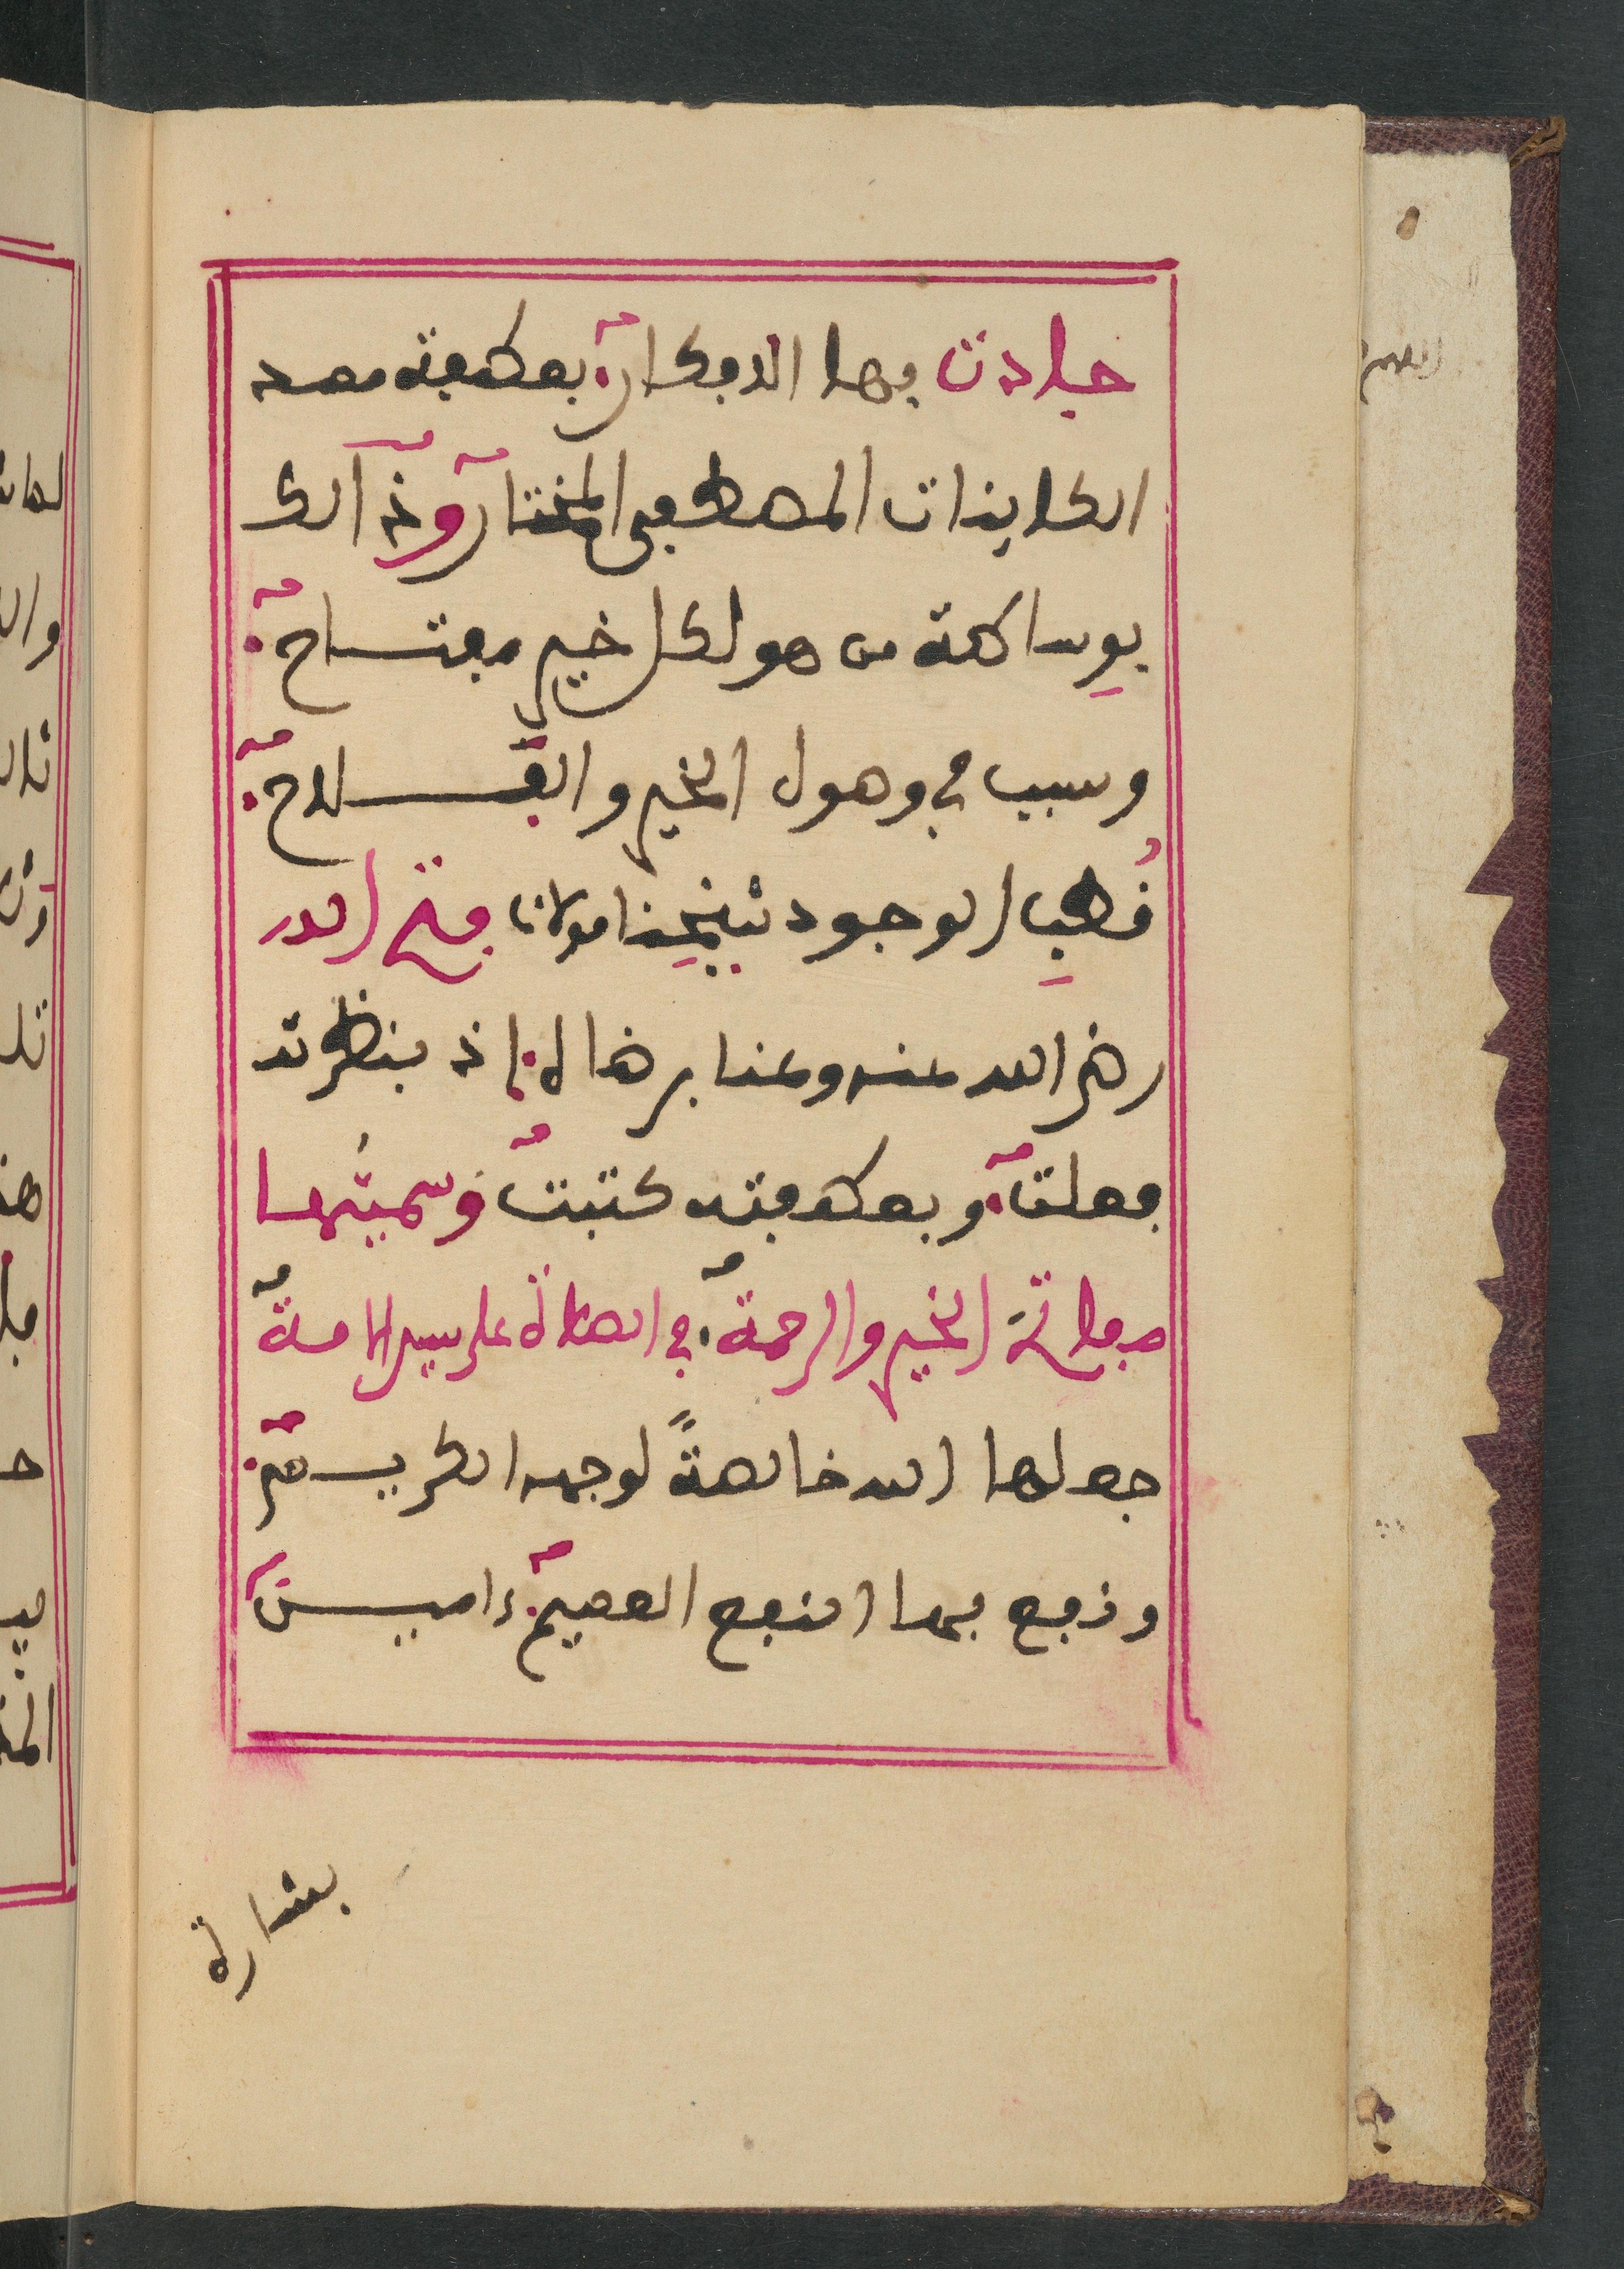 جادت بها الافكار بعطفة ممد
الكاينات المصطفى المختار وذالك
بوساطة من هو لكل خير مفتاح
وسبب في وصول الخير والفلاح
قطب الوجود شيخنا مولانا فتح الله
رضي الله عنه وعنا برضاه إذ بنظرته
فعلت وبعطفته كتبت وسميتها
مفاتح الخير والرحمة في الصلاة على سيد الامة
جعلها الله خالصة لوجهه الكريم
ونفع بها النفع العميم ءامين
بشارة